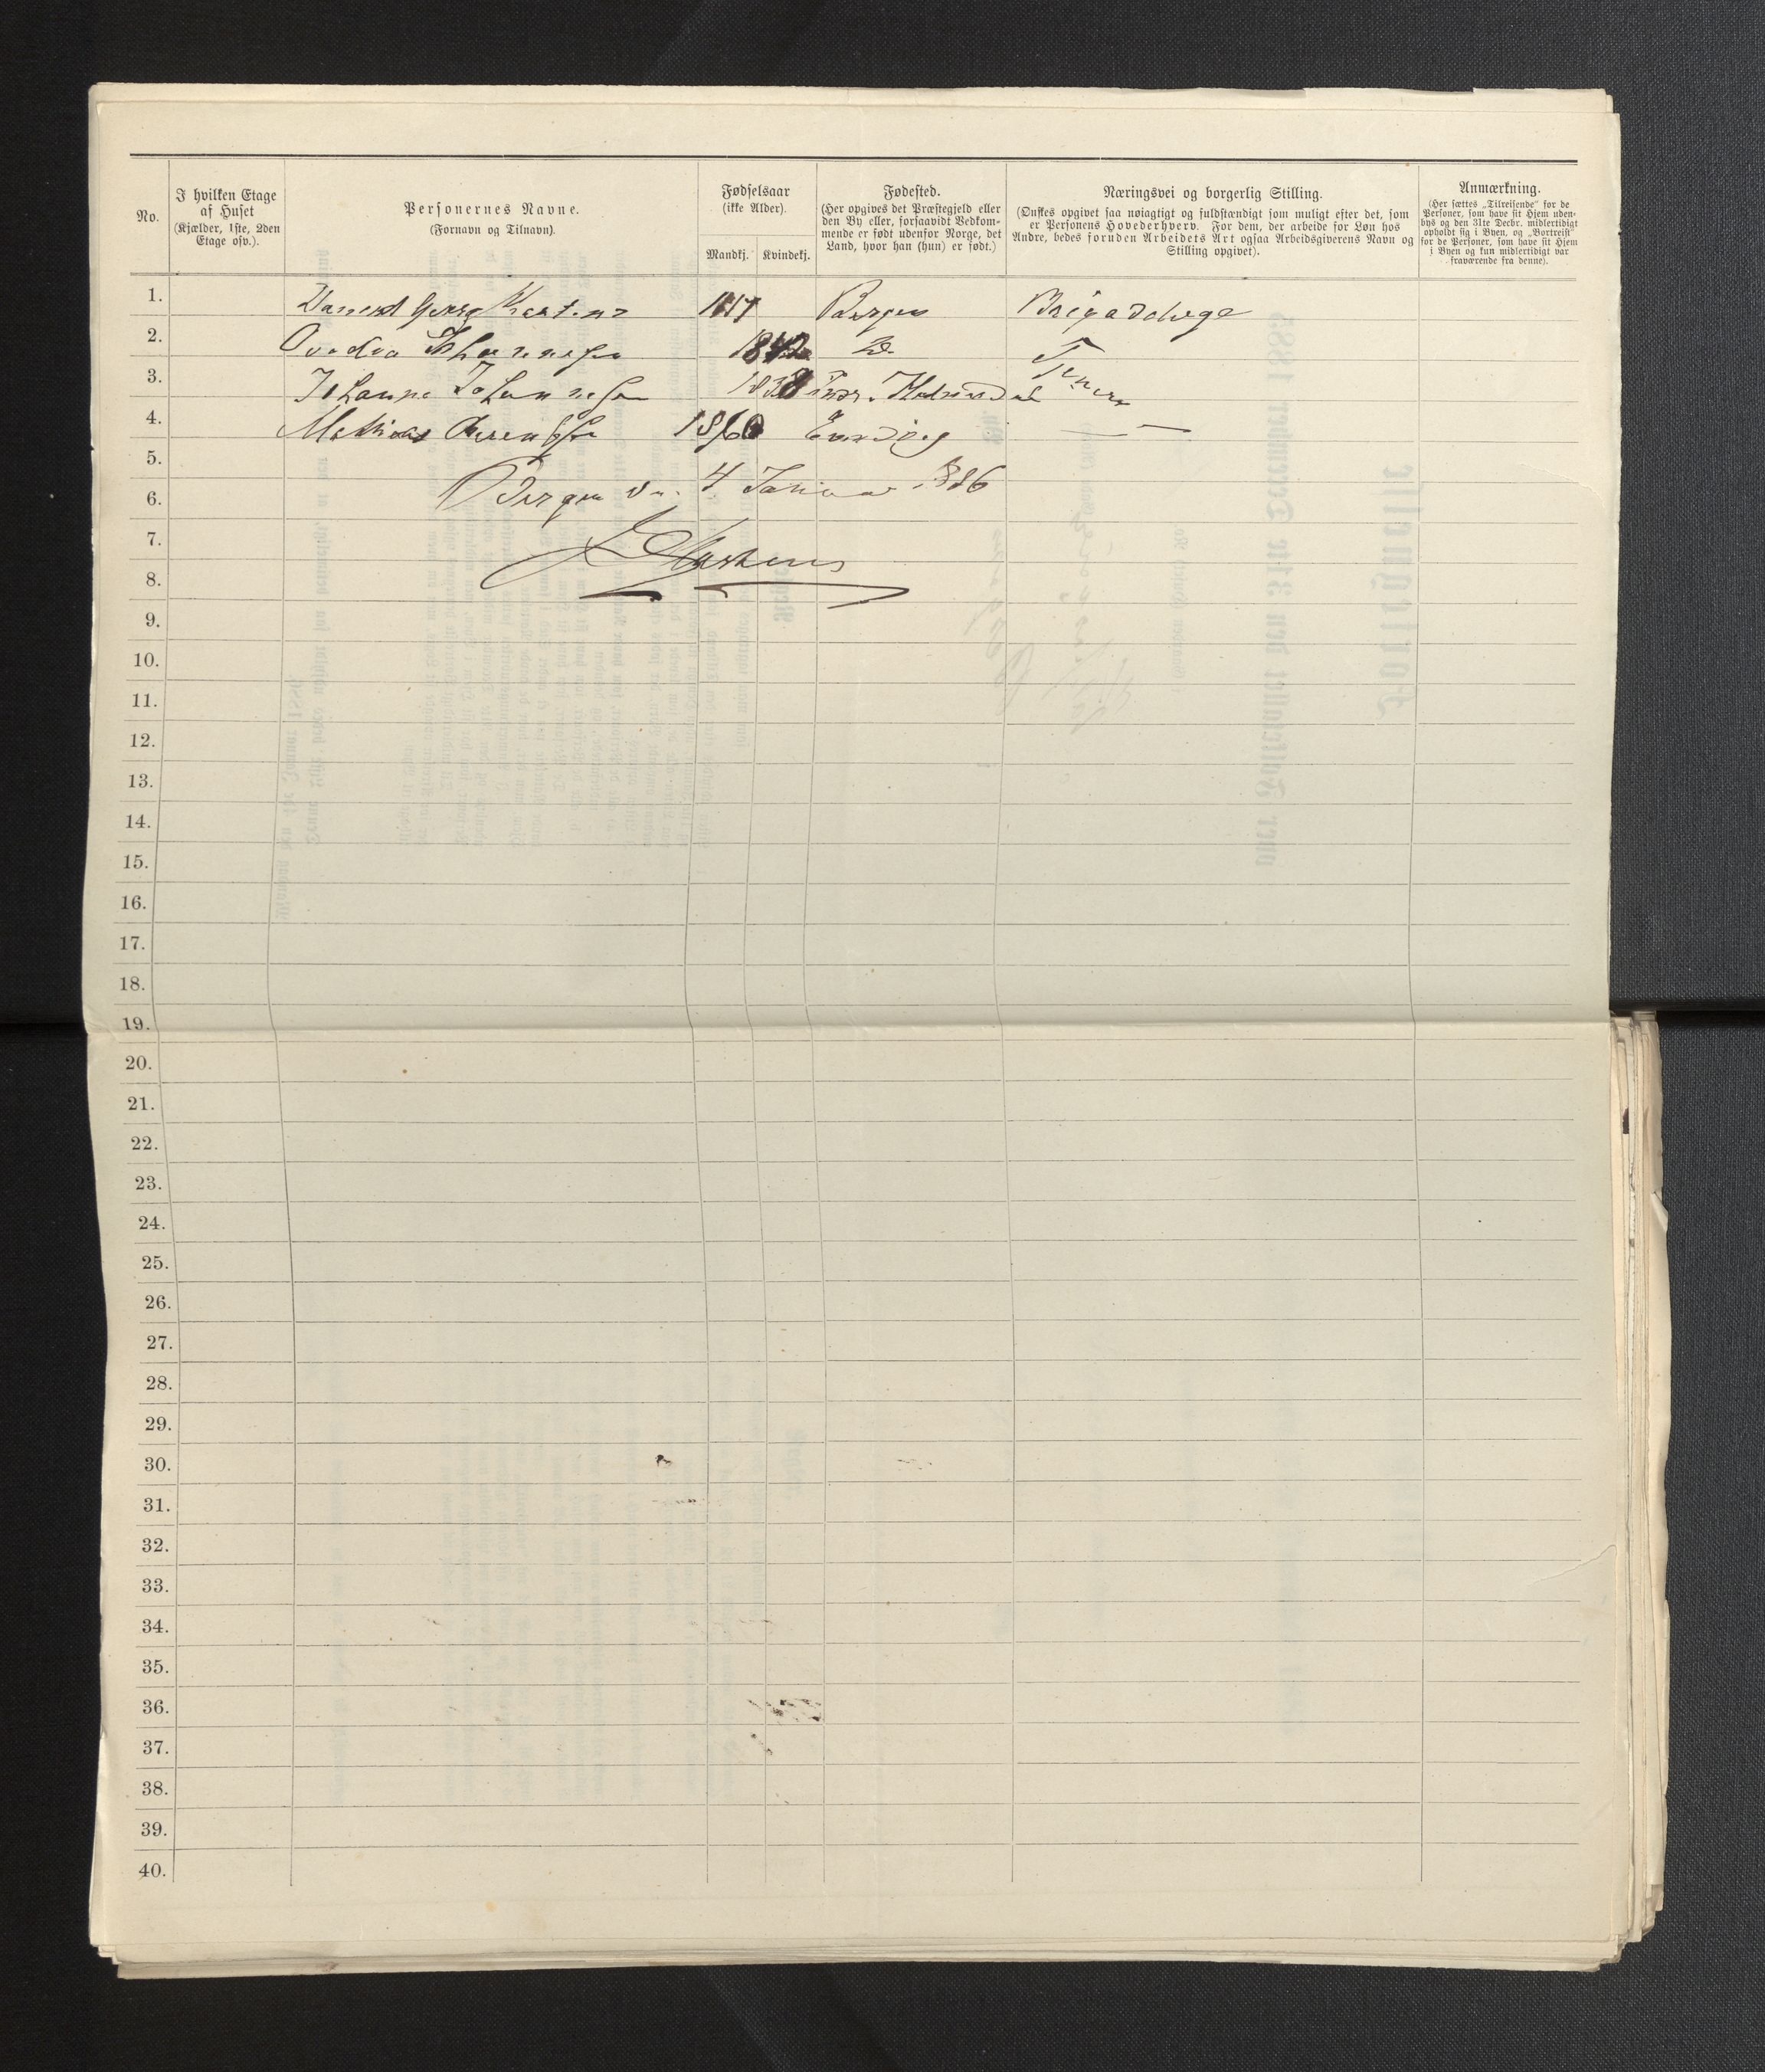 No.
I hvilken Etage
af Huset
(Kjælder, 1ste, 2den
Etage osv.).
Personernes Navne.
(Fornavn og Tilnavn).
Fødselsaar
(ikke Alder).
Mandkj. Kvindekj.
Fødested.
(Her opgives det Præstegjeld eller
den By eller, forsaavidt Vedkom-
mende er født udenfor Norge, det
Land, hvor han (hun) er født.)
Næringsvei og borgerlig Stilling.
(Ønskes opgivet saa nøiagtigt og fuldstændigt som muligt efter det, som
er Personens Hovederhverv. For dem, der arbeide for Løn hos
Andre, bedes foruden Arbeidets Art ogsaa Arbeidsgiverens Navn og
Stilling opgivet).
Anmærkning.
(Her sættes „Tilreisende“ for de
Personer, som have sit Hjem uden-
bys og den 31te Decbr. midlertidigt
opholdt sig i Byen, og „Bortreist“
for de Personer, som have sit Hjem
i Byen og kun midlertidigt var
fraværende fra denne).
1. Georg Martens Bergen
2. 1842 Do.
3. Johanne Johannesen 1838
4. Mathias 1860
5.
6. Bergen 4 Januar 1886
7.
8. Martens
9.
10.
11.
12.
13.
14.
15.
16.
17.
18.
19.
20.
21.
22.
23.
24.
25.
26.
27.
28.
29.
30.
31.
32.
33.
34.
35.
36.
37.
38.
39.
40.